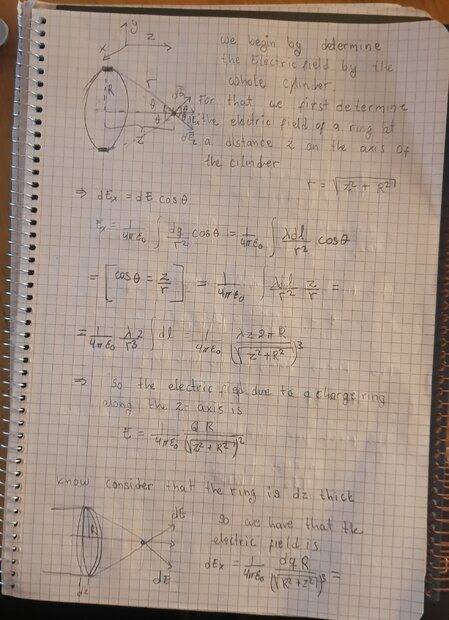 we begin by determine
the Electric field by the
whole cylinder
y
z
x
R
r
θ
θ
z
dE₂
dE₁
dE₂
For that we first determine
the electric field of a ring at
a distance z on the axis of
the cilinder
r = √(z² + R²)
⇒ dEₓ = dE cosθ
Eₓ = 1/(4πε₀) ∫ dq/r² cosθ = 1/(4πε₀) ∫ λdl/r² cosθ
= [cosθ = z/r] = 1/(4πε₀) ∫ λdl/r² z/r =
= 1/(4πε₀) λz/r³ ∫ dl = 1/(4πε₀) λz2πR/(√(z²+R²))³
⇒ So the electric field due to a charge ring
along the z-axis is
E = 1/(4πε₀) QR/(√(z²+R²))²
know consider that the ring is dz thick
R
dz
dE
dE
so we have that the
electric field is
dEₓ = 1/(4πε₀) dqR/(√(R²+z²))³ =